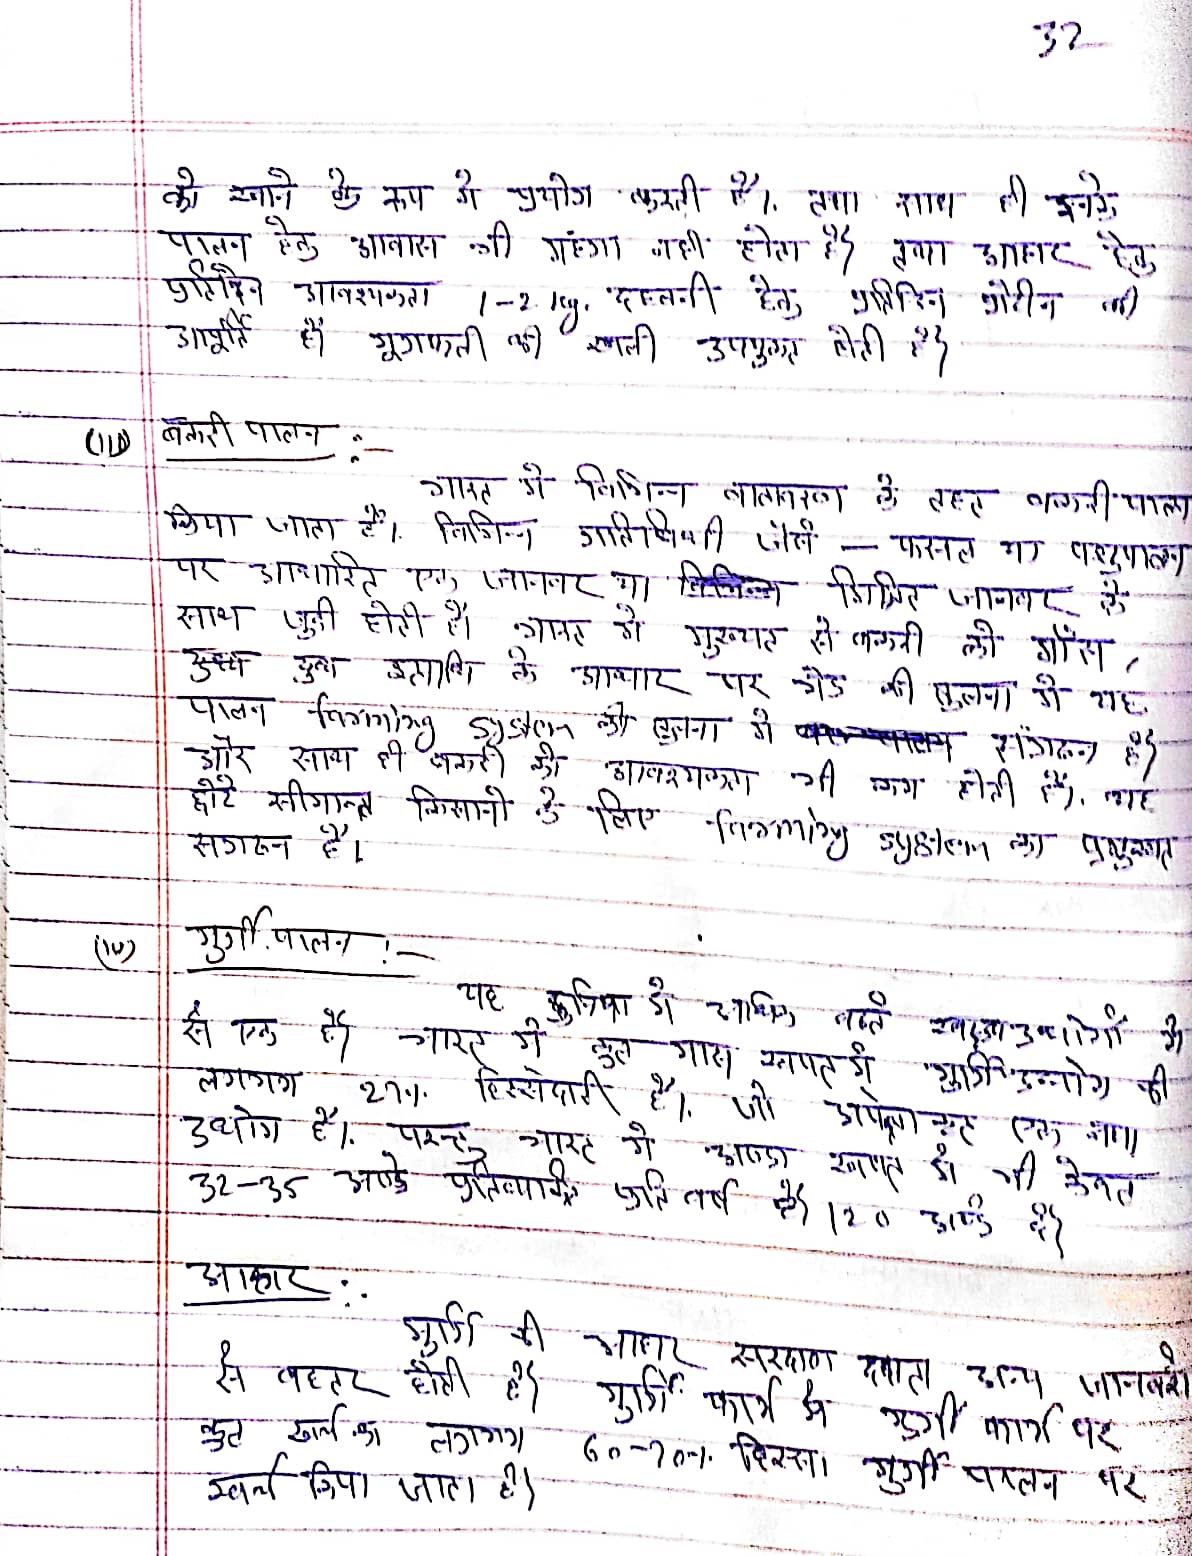 32
को खाने के रूप मे प्रयोग करती है। तथा साथ ही इनके
पालन हेतु आवास भी महंगा नही होता है। तथा आहार हेतु
प्रतिदिन आवश्यकता 1-2 kg. दलहनी हेतु प्रतिदिन प्रोटीन की
आपूर्ति है। मूगफली की खली उपयुक्त होती है।
(III) बकरी पालन :-
भारत मे विभिन्न वातावरण के तहत बकरी पालन
किया जाता है। विभिन्न जैसे — फसल या पशुपालन
पर आधारित एक जानवर या मिश्रित जानवर के
साथ जुड़ी होती है। भारत मे मुख्यत से बकरी को माँस,
दुग्ध इत्यादि के आधार पर भेड की तुलना मे यह
पालन farming system की तुलना मे है।
और साथ ही बकरी की आवश्यकता भी कम होती है। यह
छोटे सीमान्त किसानो के लिए farming system का
है।
(IV) मुर्गी पालन :-
यह मे अधिक बढते उद्योगों मे
से एक है। भारत मे कुल मास खपत मे मुर्गी उद्योग की
लगभग 27% हिस्सेदारी है। जो एक नया
उद्योग है। परन्तु भारत मे अण्डा खपत मे भी केवल
32-35 अण्डे प्रतिव्यक्ति प्रति वर्ष है। 120 अण्डे है।
आहार :-
मुर्गी की आहार क्षमता अन्य जानवरो
से बेहतर होती है। मुर्गी फार्म मे मुर्गी फार्म पर
कुल खर्च का लगभग 60-70% हिस्सा मुर्गी पालन पर
खर्च किया जाता है।